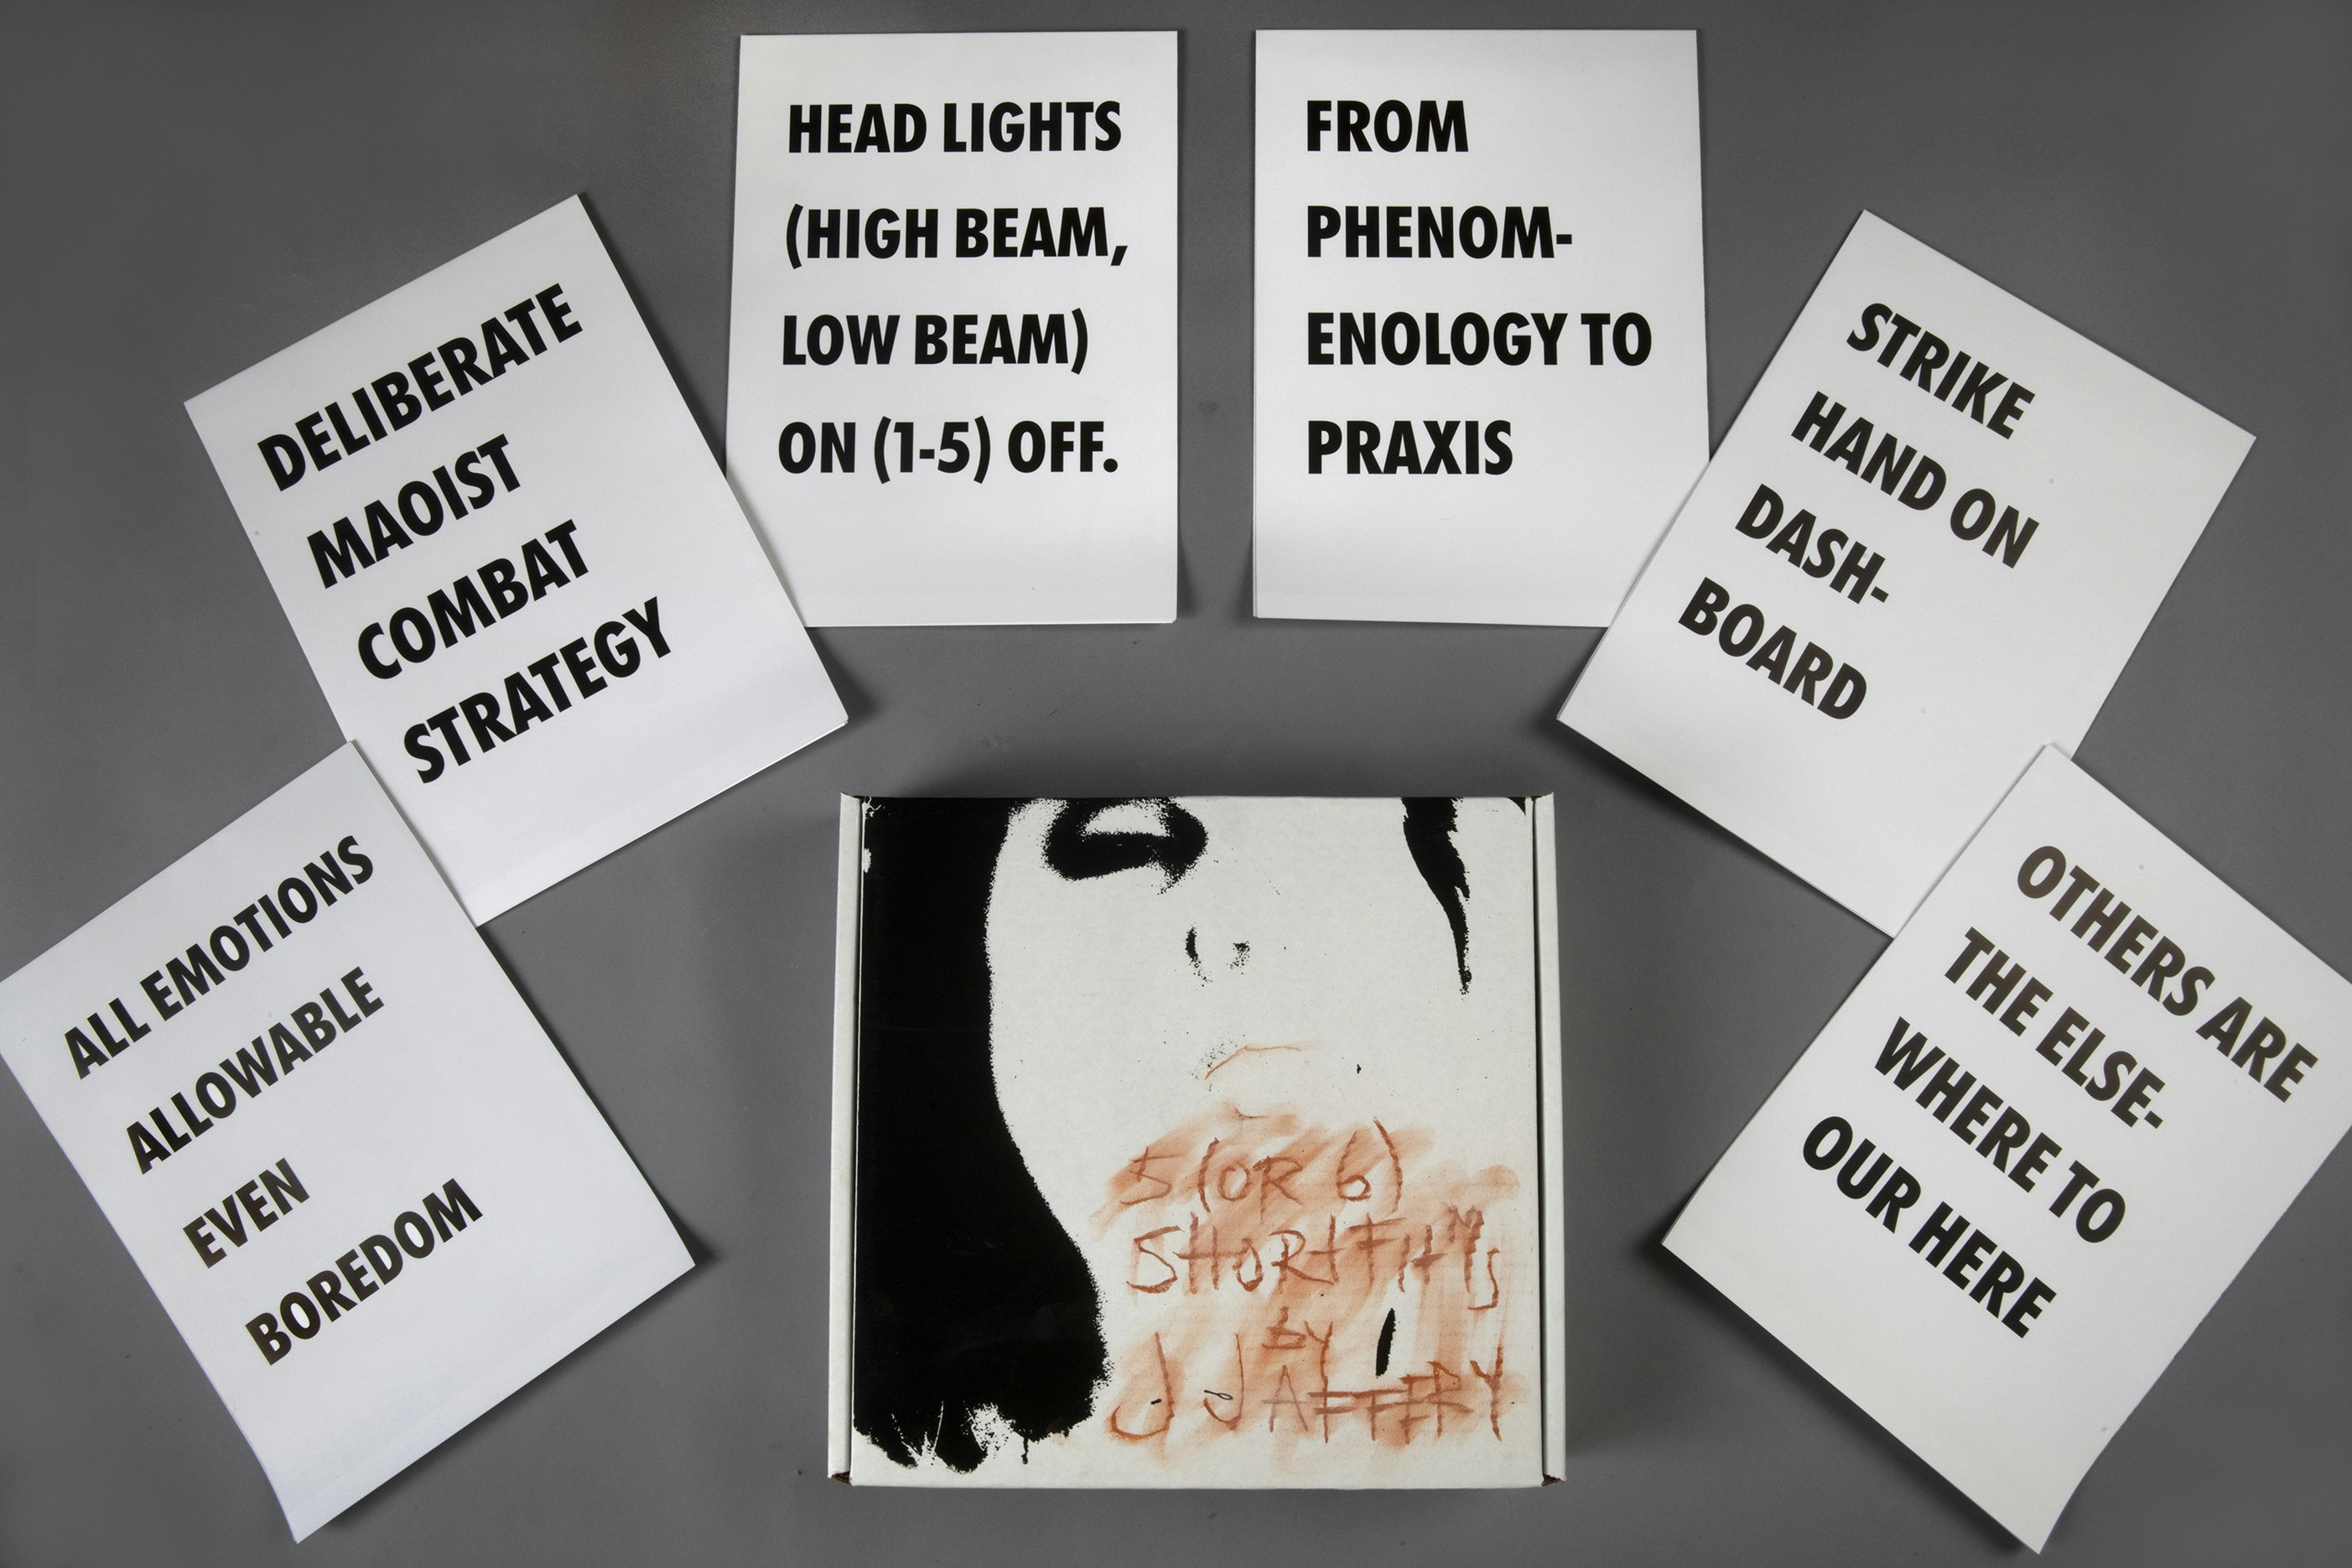 ALL EMOTIONS
ALLOWABLE
EVEN
BOREDOM
DELIBERATE
MAOIST
COMBAT
STRATEGY
HEAD LIGHTS
(HIGH BEAM,
LOW BEAM)
ON (1-5) OFF.
FROM
PHENOM-
ENOLOGY TO
PRAXIS
STRIKE
HAND ON
DASH-
BOARD
OTHERS ARE
THE ELSE-
WHERE TO
OUR HERE
5 (OR 6)
SHORT FILMS
by
J JAFFERY